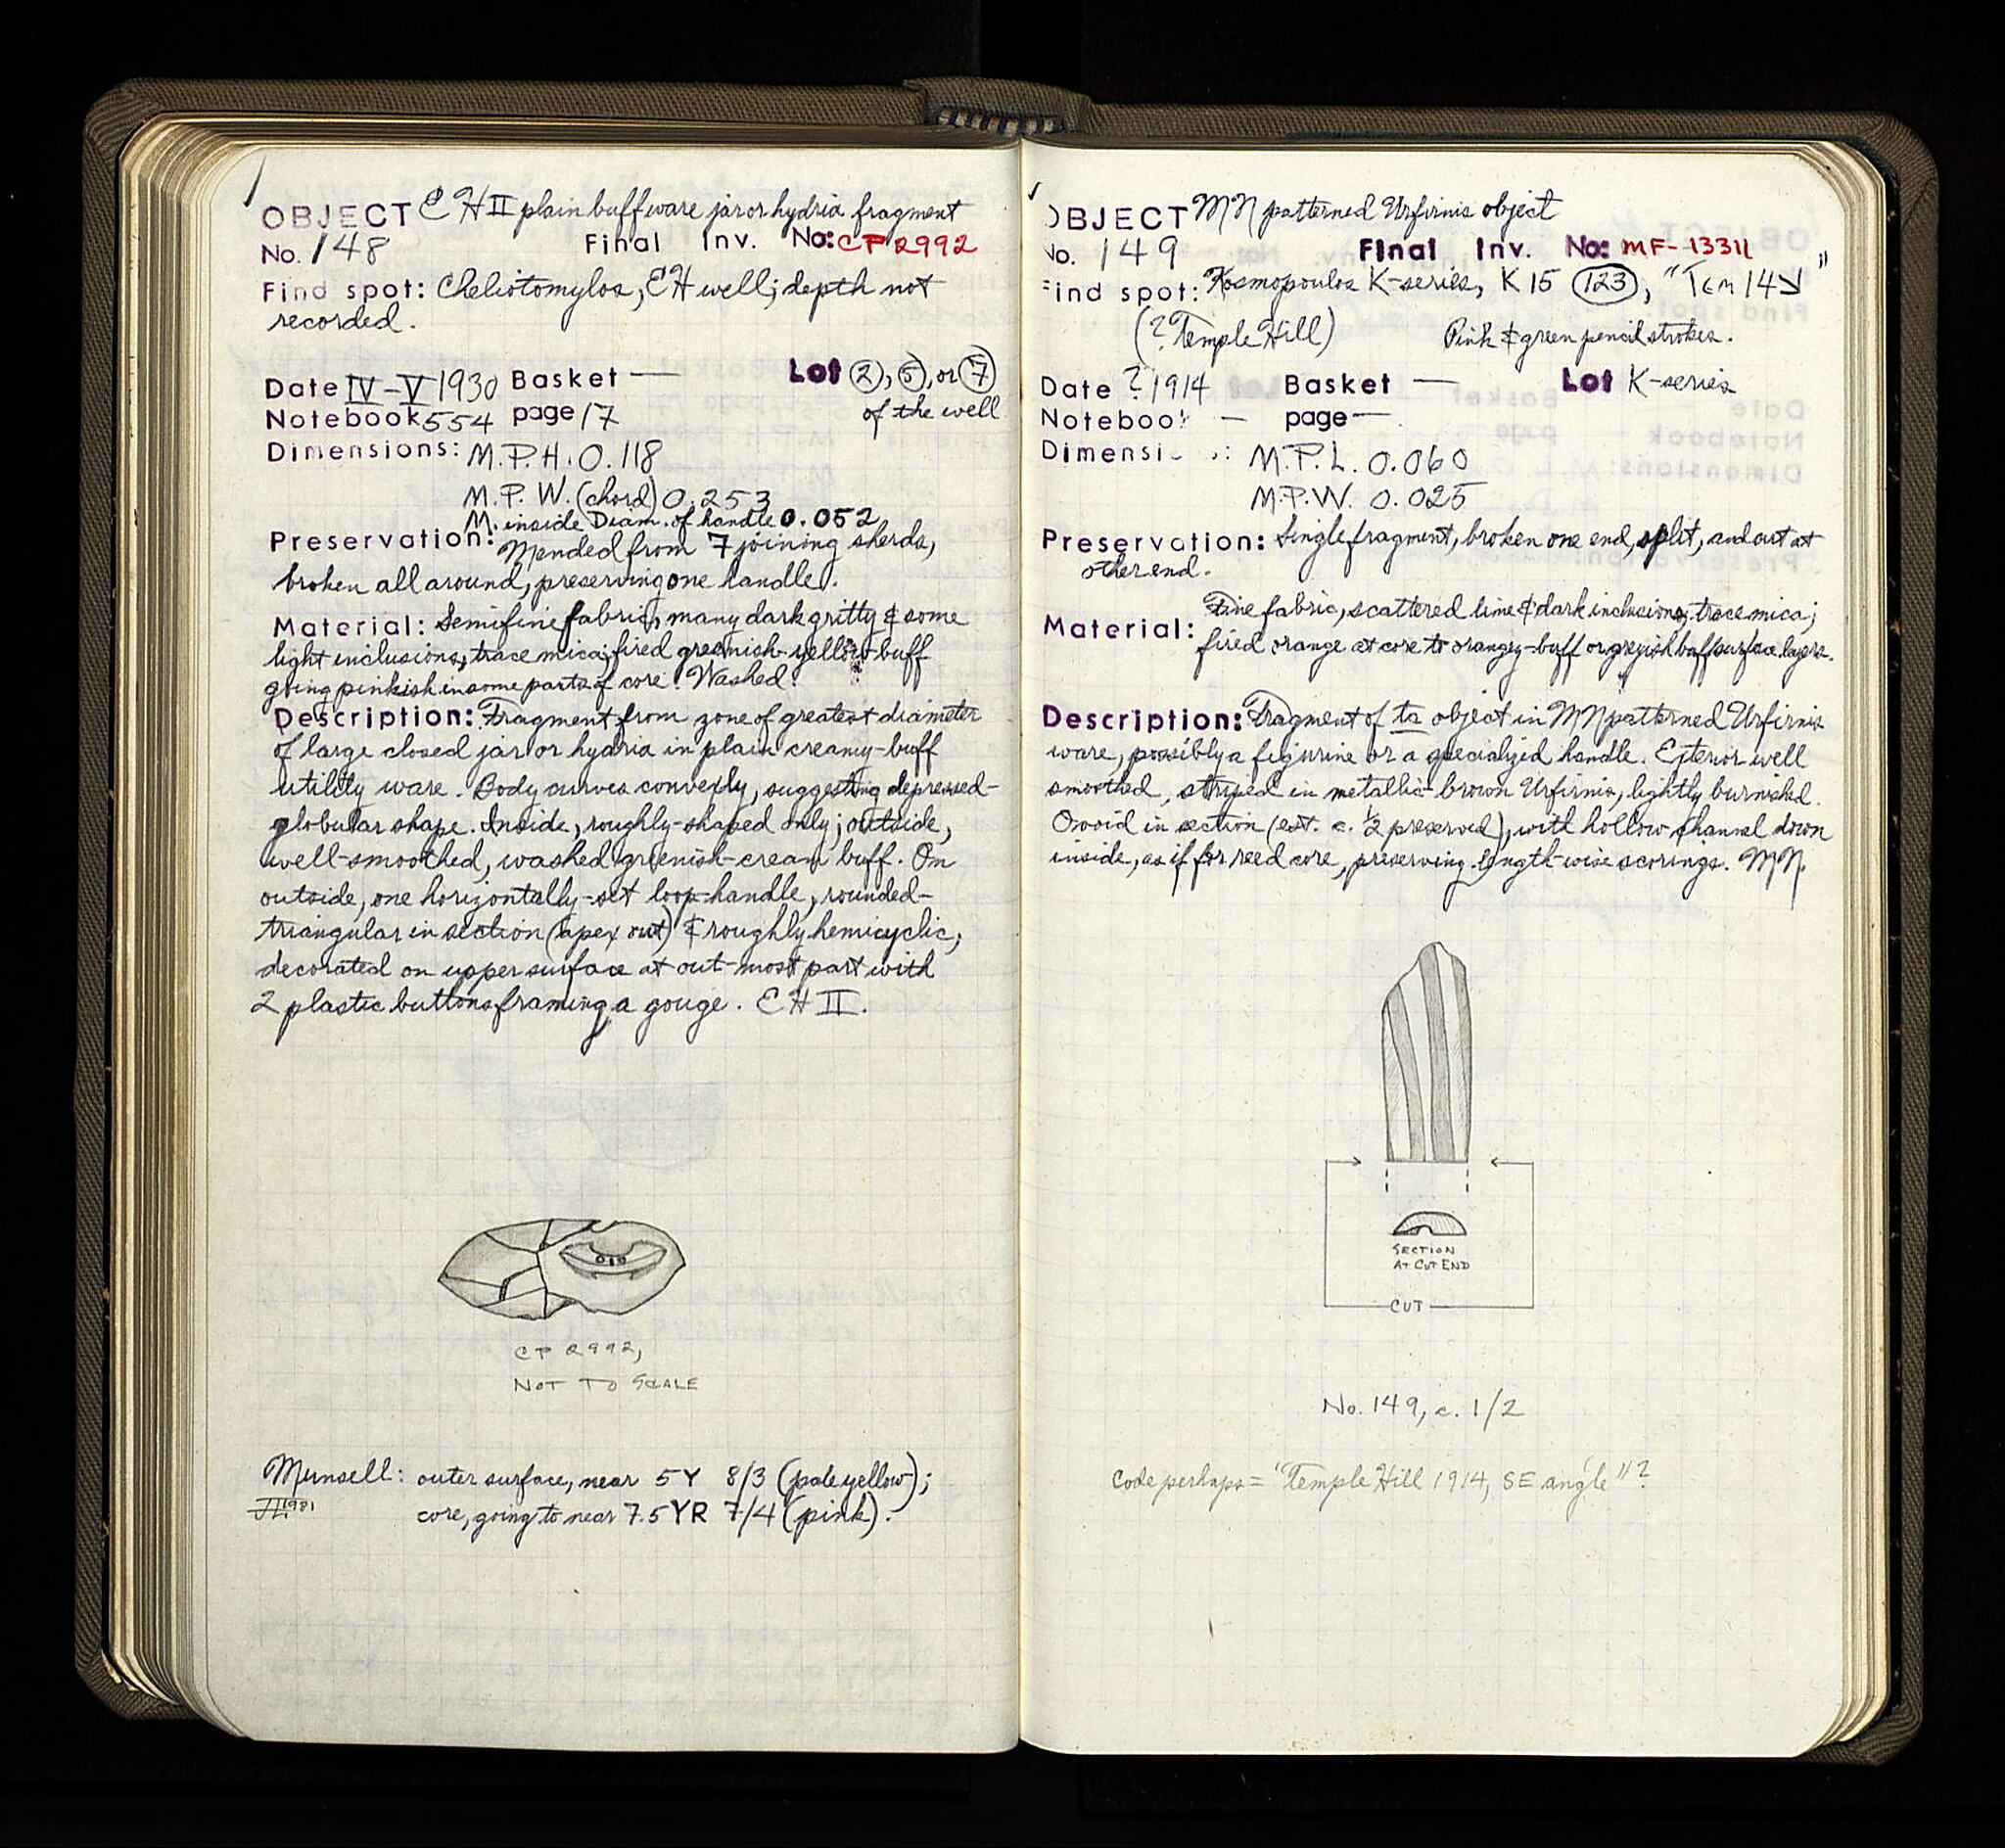 OBJECT EH II plain buff ware jar or hydria fragment
No. 148 Final Inv. No: CP 2992
Find spot: Cheliotomylos, EH well; depth not
recorded.
Date IV–V 1930 Basket — Lot (2), (5), or (7)
Notebook 554 page 17 of the well
Dimensions: M.P.H. 0.118
M.P.W. (chord) 0.253
M. inside Diam. of handle 0.052
Preservation: Mended from 7 joining sherds,
broken all around, preserving one handle.
Material: Semifine fabric, many dark gritty & some
light inclusions, trace mica; fired greenish-yellow-buff
going pinkish in some parts of core. Washed.
Description: Fragment from zone of greatest diameter
of large closed jar or hydria in plain creamy-buff
utility ware. Body curves convexly, suggesting depressed-
globular shape. Inside, roughly-shaped only; outside,
well-smoothed, washed greenish-cream buff. On
outside, one horizontally-set loop-handle, rounded-
triangular in section (apex out) & roughly hemicyclic,
decorated on upper surface at out-most part with
2 plastic buttons framing a gouge. EH II.
CP 2992,
NOT TO SCALE
Munsell: outer surface, near 5Y 8/3 (pale yellow);
II.1981 core, going to near 7.5YR 7/4 (pink).
OBJECT MN patterned Urfirnis object
No. 149 Final Inv. No: MF-13311
Find spot: Kosmopoulos K-series, K 15 (123), "Tem 14↘"
(? Temple Hill) Pink & green pencil strokes.
Date ? 1914 Basket — Lot K-series
Notebook — page —
Dimensi : M.P.L. 0.060
M.P.W. 0.025
Preservation: Single fragment, broken one end, split, and cut at
other end.
Fine fabric, scattered lime & dark inclusions, trace mica;
Material: fired orange at core to orangey-buff or greyish buff surface layers.
Description: Fragment of tc object in MN patterned Urfirnis
ware, possibly a figurine or a specialized handle. Exterior well
smoothed, striped in metallic-brown Urfirnis, lightly burnished.
Ovoid in section (est. c. 1/2 preserved), with hollow channel down
inside, as if for reed core, preserving length-wise scorings. MN.
SECTION
AT CUT END
CUT
No. 149, c. 1/2
Code perhaps = "Temple Hill 1914, SE angle"?